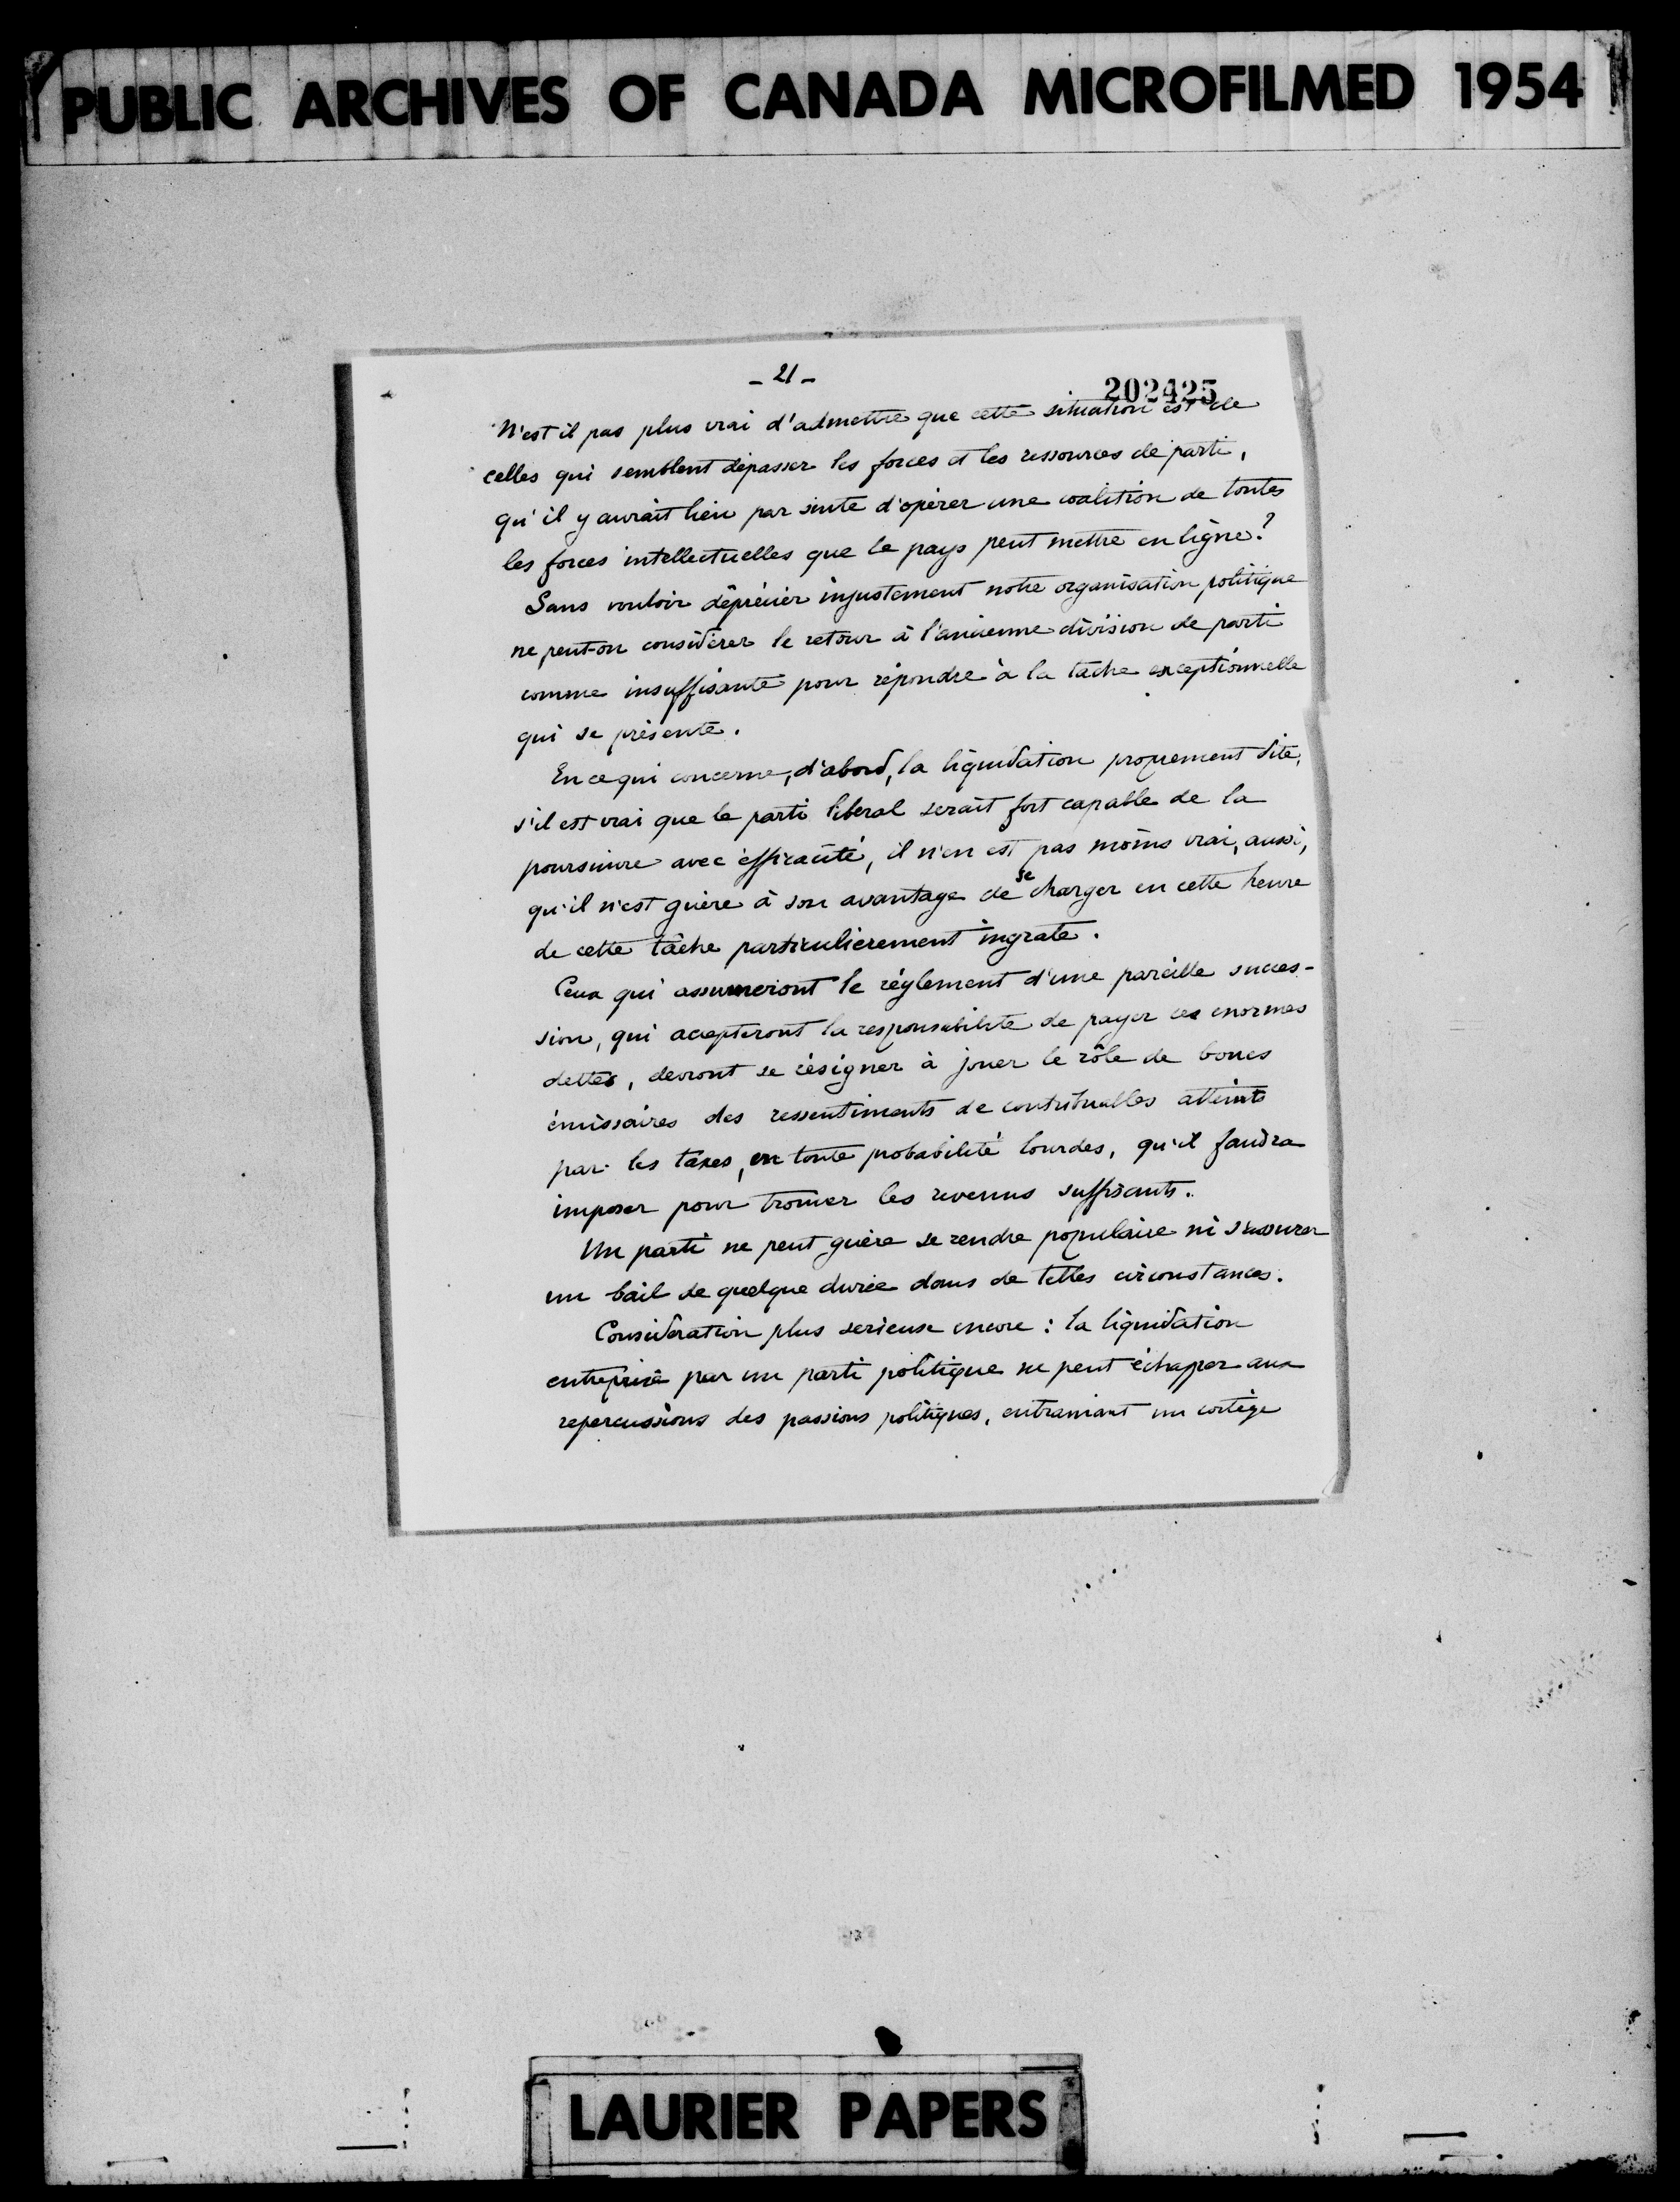 PUBLIC ARCHIVES OF CANADA MICROFILMED 1954
- 21 -
202425
N'est il pas plus vrai d'admettre que cette situation est de
celles qui semblent dépasser les forces et les ressources de parti,
qu'il y aurait lieu par suite d'opérer une coalition de toutes
les forces intellectuelles que le pays peut mettre en ligne?
Sans vouloir déprécier injustement notre organisation politique
ne peut-on considérer le retour à l'ancienne division de parti
comme insuffisante pour répondre à la tâche exceptionnelle
qui se présente.
En ce qui concerne, d'abord, la liquidation proprement dite,
s'il est vrai que le parti liberal serait fort capable de la
poursuivre avec efficacité, il n'en est pas moins vrai, aussi,
qu'il n'est guère à son avantage de se charger en cette heure
de cette tâche particulierement ingrate.
Ceux qui assumeriont le réglement d'une pareille succes-
sion, qui accepteront la responsabilite de payer ces enormes
dettes, devront se résigner à jouer le rôle de boucs
émissaires des ressentiments de contribuables atteints
par les taxes, en toute probabilité lourdes, qu'il faudra
imposer pour trouver les revenus suffisants.
Un parti ne peut guère se rendre populaire ni s'assurer
un bail de quelque durée dans de telles circonstances.
Consideration plus serieuse encore : la liquidation
entreprise par un parti politique ne peut échapper aux
repercussions des passions politiques, entrainant un cortège
LAURIER PAPERS